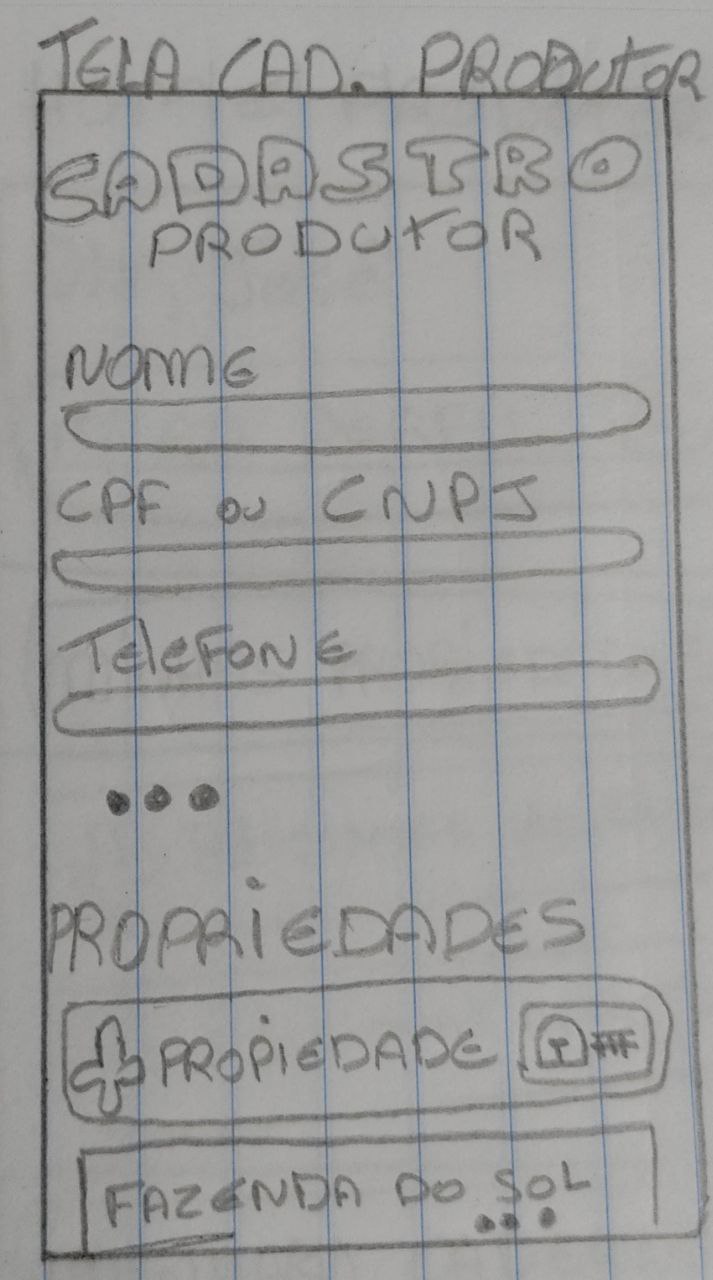 TELA CAD. PRODUTOR
CADASTRO
PRODUTOR
NOME
CPF OU CNPJ
TELEFONE
•••
PROPRIEDADES
PROPIEDADE
FAZENDA DO SOL
•••